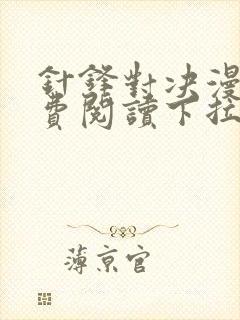 針鋒對决漫
費閱讀下拉
薄京官